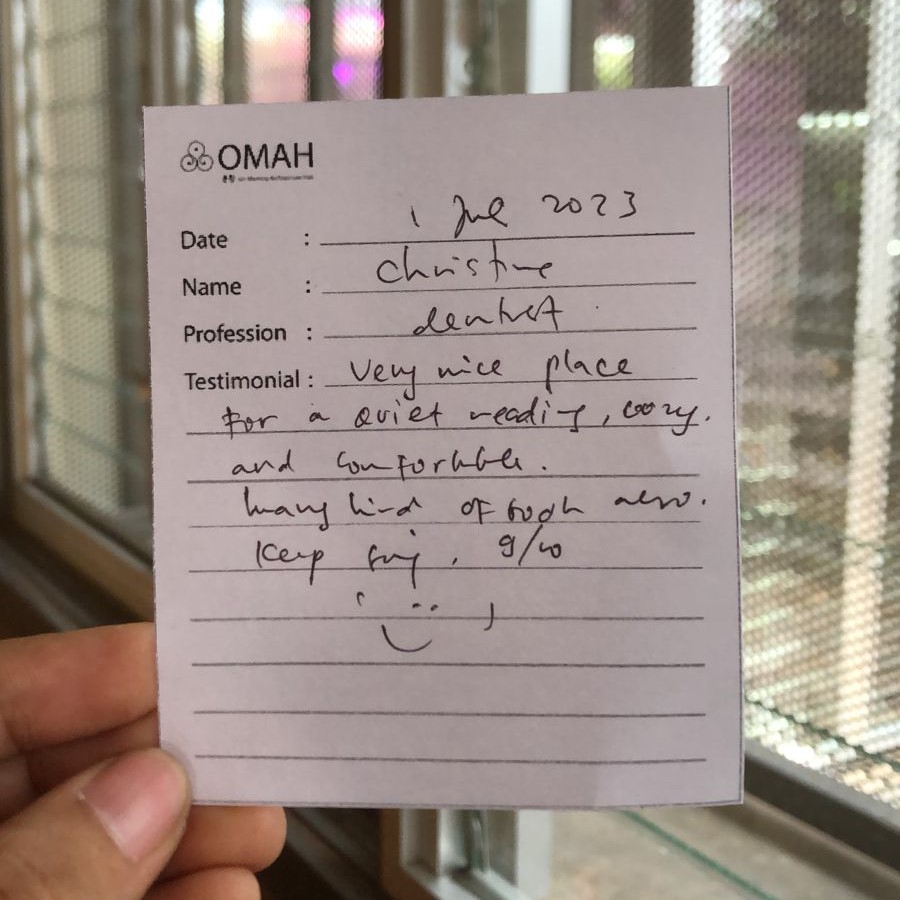 OMAH
Date : 1 June 2023
Name : Christine
Profession : dentist
Testimonial : Very nice place
for a quiet reading, cozy.
and comfortable.
Many kind of book also.
Keep , 9/10